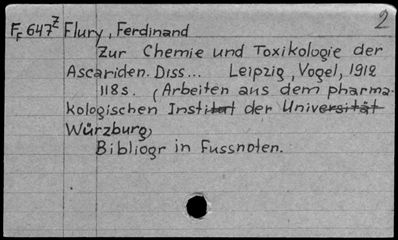 2
Ff 647z Flury, Ferdinand
Zur Chemie und Toxikologie der
Ascariden. Diss... Leipzig, Vogel, 1912
118s. (Arbeiten aus dem pharma-
kologischen Institut der Universität
Würzburg)
Bibliogr in Fussnoten.